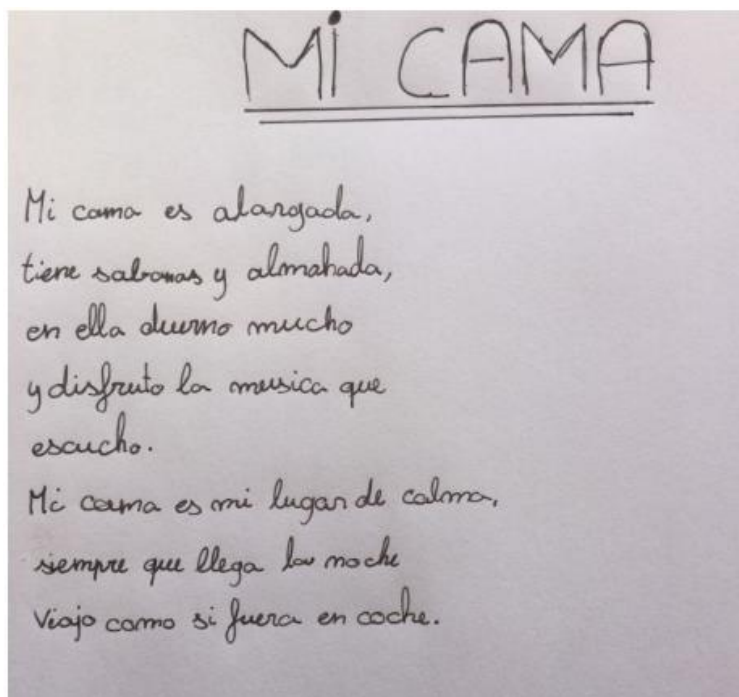 MI CAMA
Mi cama es alargada,
tiene sabanas y almahada,
en ella duermo mucho
y disfruto la musica que
escucho.
Mi cama es mi lugar de calma,
siempre que llega la noche
Viajo como si fuera en coche.